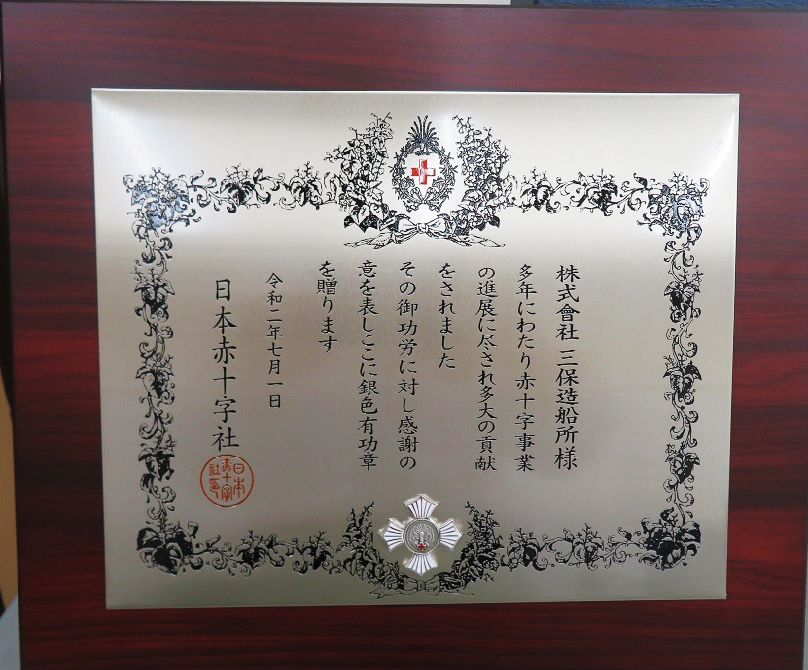 株式會社 三保造船所様
多年にわたり赤十字事業
の進展に尽され多大の貢献
をされました
その御功労に対し感謝の
意を表しここに銀色有功章
を贈ります
令和二年七月一日
日本赤十字社
日本
赤十字
社印